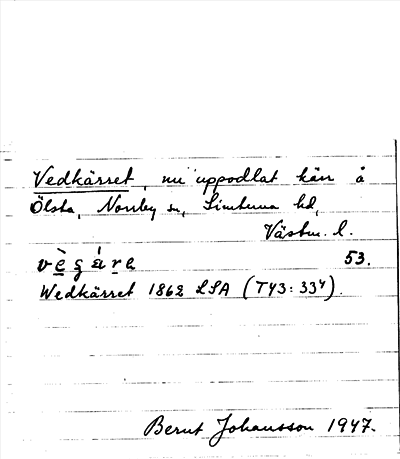 Vedkärret, nu uppodlat kärr å
Ölsta, Norrby sn, Simtuna hd,
Västm. l.
vègára 53.
Wedkärret 1862 LSA (T43: 33⁴).
Bernt Johansson 1947.